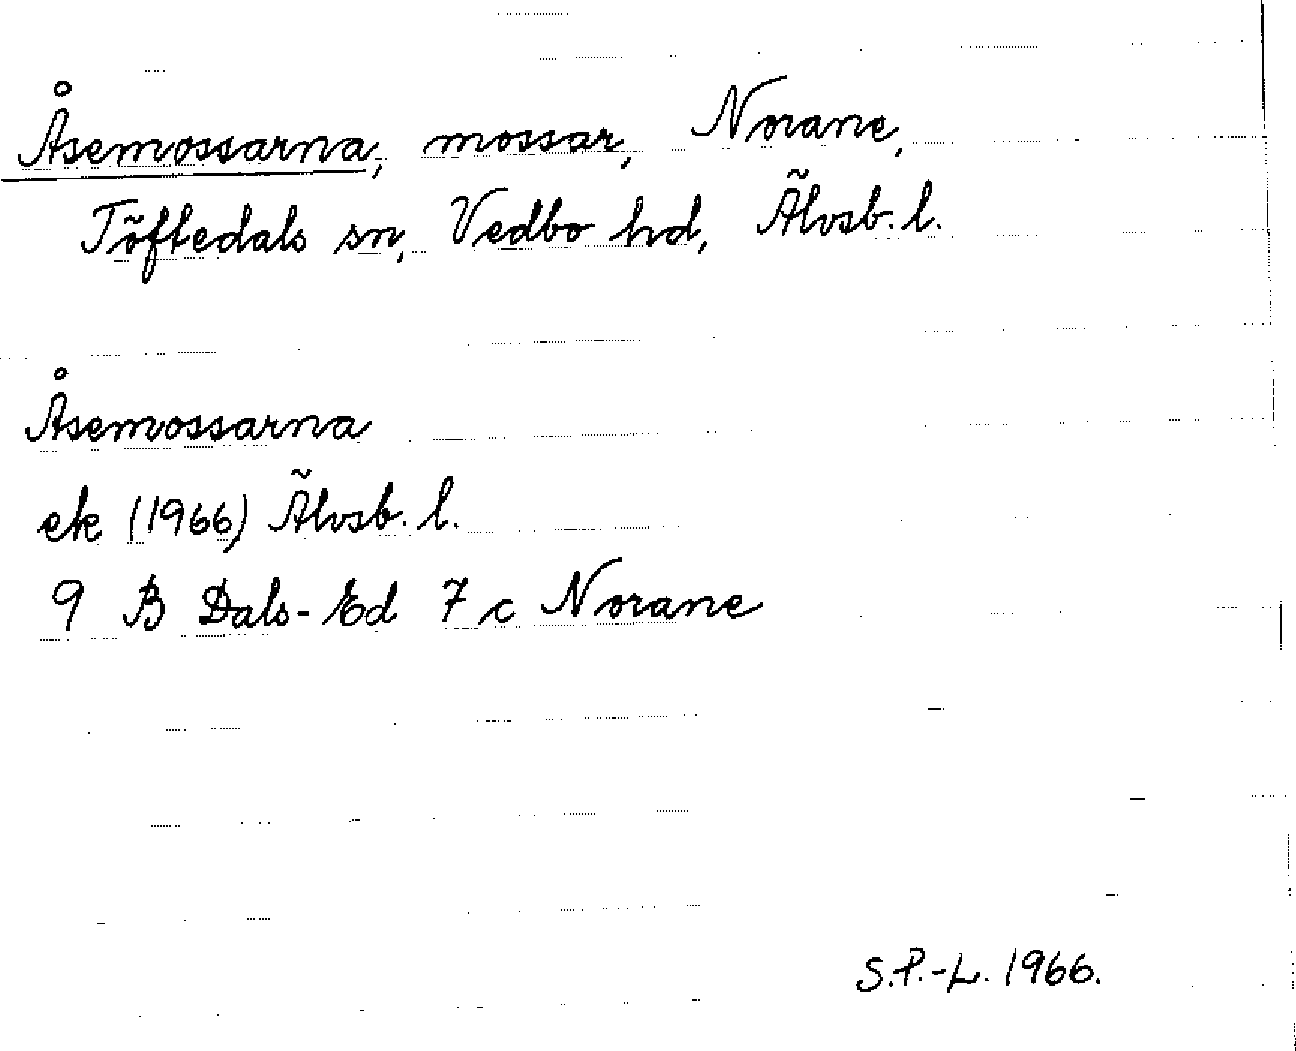 Åsemossarna, mossar, Norane,
Töftedals sn, Vedbo hd, Älvsb. l.
Åsemossarna
ek (1966) Älvsb. l.
9 B Dals-Ed 7 c Norane
S.P.-L. 1966.